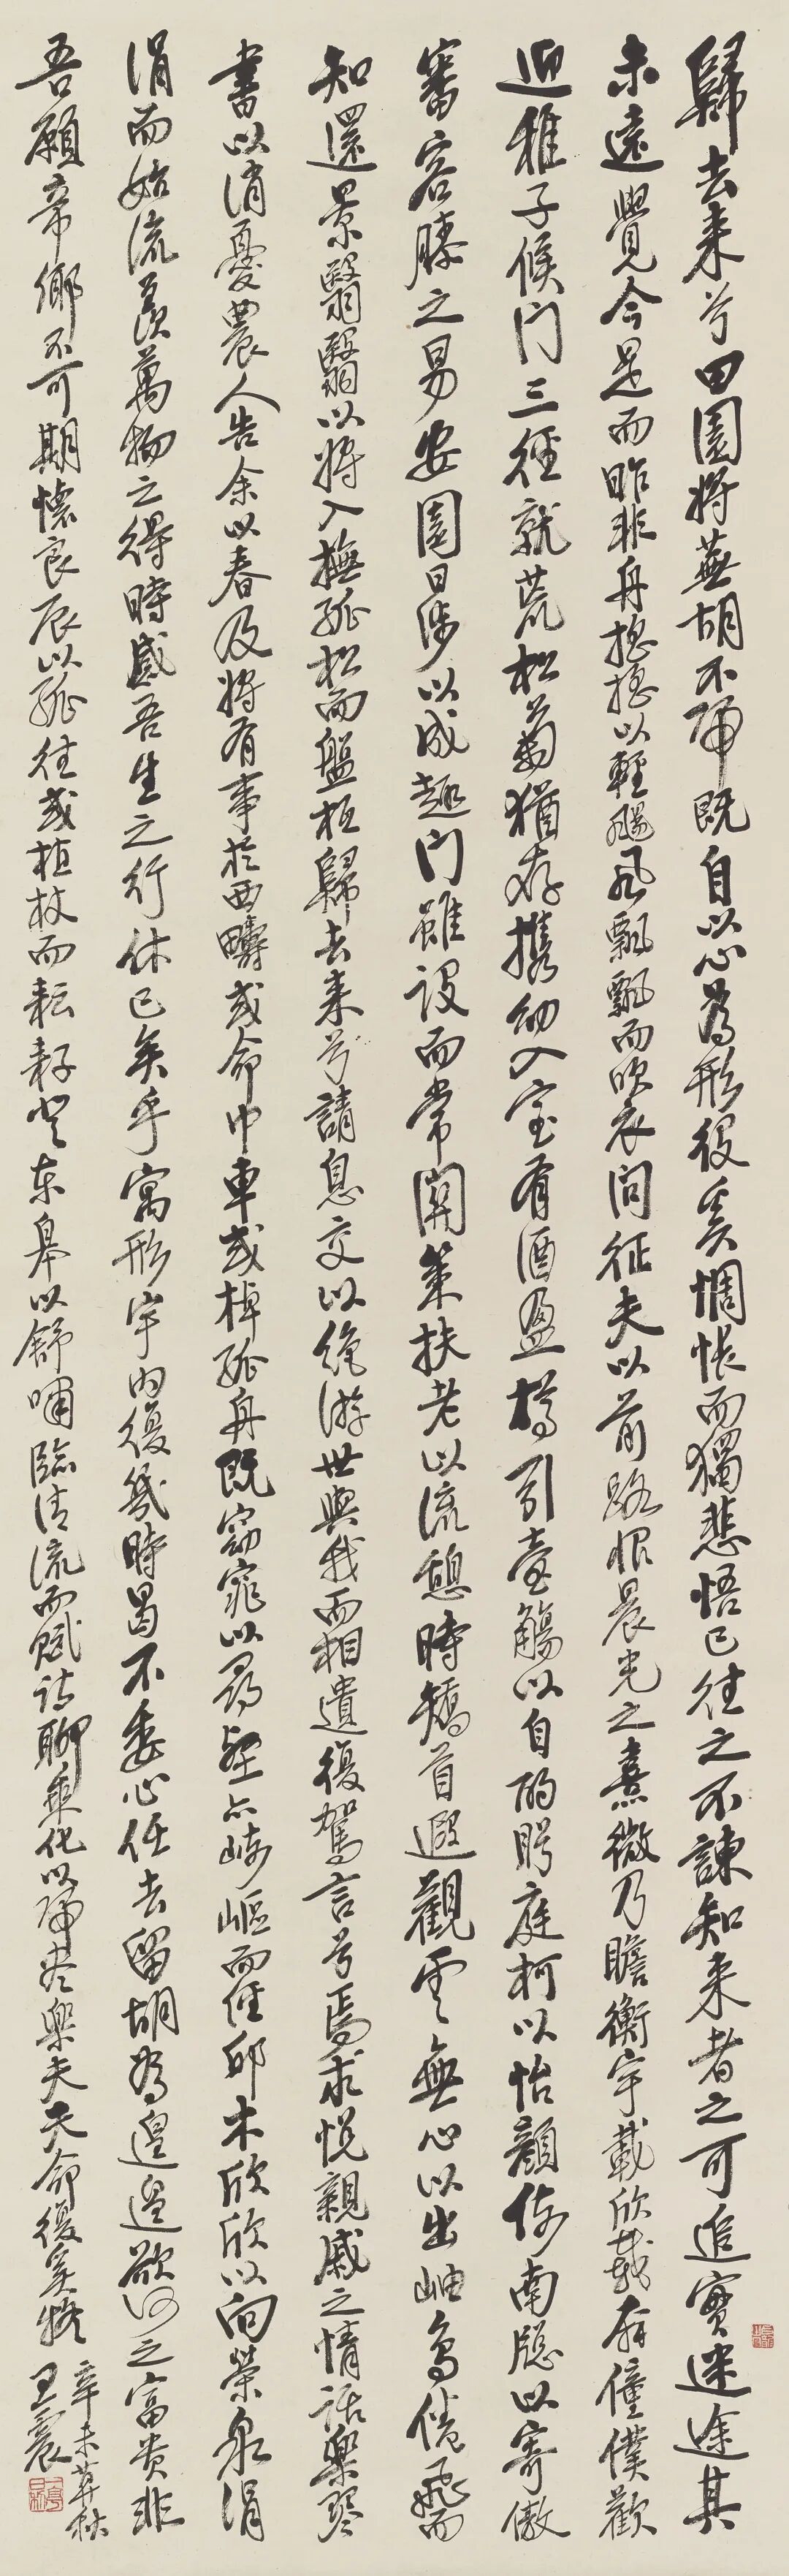 歸去来兮田園将蕪胡不歸既自以心為形役奚惆悵而獨悲悟已往之不諫知来者之可追實迷途其
未遠覺今是而昨非舟搖搖以輕颺風飄飄而吹衣問征夫以前路恨晨光之熹微乃瞻衡宇載欣載奔僮僕歡
迎稚子候门三徑就荒松菊猶存携幼入室有酒盈樽引壺觴以自酌眄庭柯以怡顏倚南牕以寄傲
審容膝之易安園日涉以成趣门雖設而常關策扶老以流憩時矯首遐觀雲無心以出岫鳥倦飛而
知還景翳翳以将入撫孤松而盤桓歸去来兮請息交以絶游世與我而相遺復駕言兮焉求悦親戚之情話樂琴
書以消憂農人告余以春及将有事於西疇或命巾車或棹孤舟既窈窕以尋壑亦崎嶇而經邱木欣欣以向榮泉涓
涓而始流羨萬物之得時感吾生之行休已矣乎寓形宇内復幾時曷不委心任去留胡為遑遑欲何之富贵非
吾願帝鄉不可期懷良辰以孤往或植杖而耘耔登东皋以舒嘯臨清流而賦诗聊乘化以歸盡樂夫天命復奚疑
辛未莫秋
王震